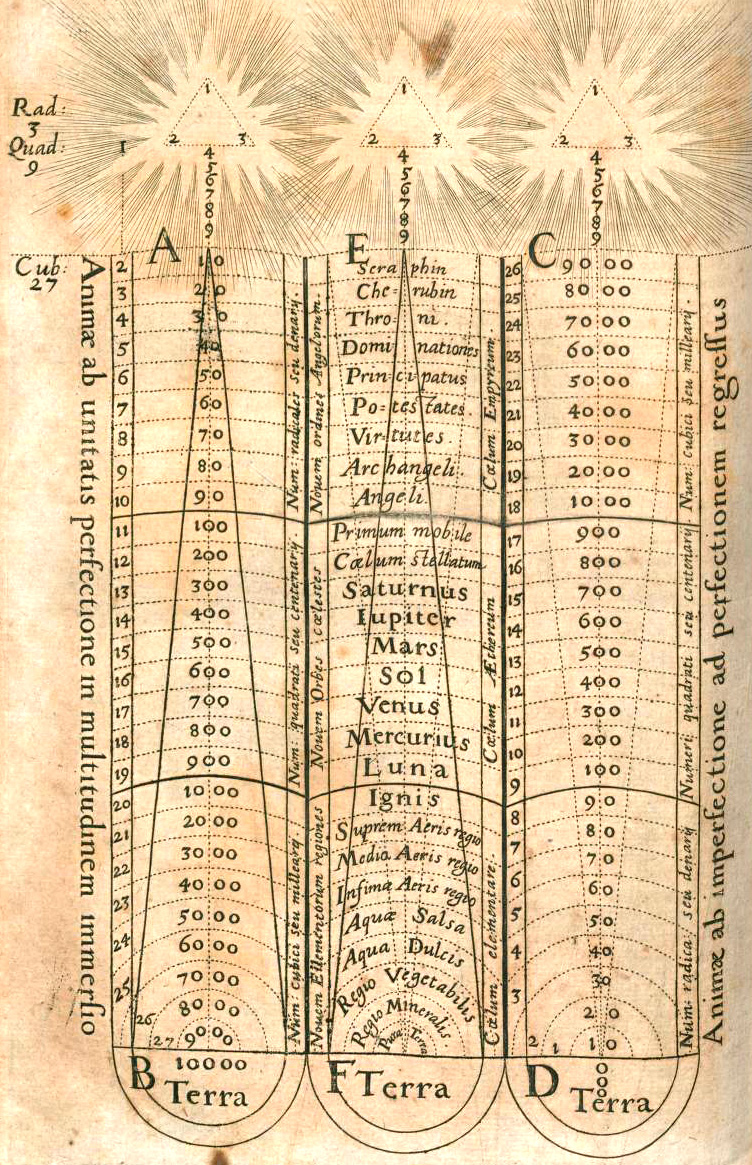 Rad:
3
Quad:
9
1
Cub:
27
1
2 3
4
5
6
7
8
9
1
2 3
4
5
6
7
8
9
1
2 3
4
5
6
7
8
9
Animæ ab unitatis perfectione in multitudinem immersio
A
2 10
3 20
4 30
5 40
6 50
7 60
8 70
9 80
10 90
11 100
12 200
13 300
14 400
15 500
16 600
17 700
18 800
19 900
20 1000
21 2000
22 3000
23 4000
5000
24 6000
7000
25 8000
26
27 9000
10000
B
Terra
Num: radicales seu denarij.
Num: quadrati seu centenarij.
Num: cubici seu millearij
Novem ordines Angelorum.
Novem Orbes cœlestes
Novem Ellementorum regiones
E
Seraphin
Che=rubin
Throni.
Dominationes
Principatus
Po=testates
Virtutes.
Archangeli.
Angeli.
Primum mobile
Cœlum stellatum
Saturnus
Iupiter
Mars
Sol
Venus
Mercurius
Luna
Ignis
Suprem: Aeris regio
Media Aeris regio
Infima Aeris regio
Aquæ Salsa
Aqua Dulcis
Regio Vegetabilis
Regio Mineralis
Pura Terra
F Terra
Cœlum Empyreum
Cœlum Æthereum
Cœlum elementare.
C
26 9000
25 8000
24 7000
23 6000
22 5000
21 4000
20 3000
19 2000
18 1000
17 900
16 800
15 700
14 600
13 500
12 400
11 300
10 200
9 100
8 90
7 80
6 70
5 60
4 50
40
3 30
20
2 1 10
0
0
0
D
Terra
Num: cubici seu millearij.
Numeri quadrati seu centenarij
Num: radica: seu denarij
Animæ ab imperfectione ad perfectionem regressus